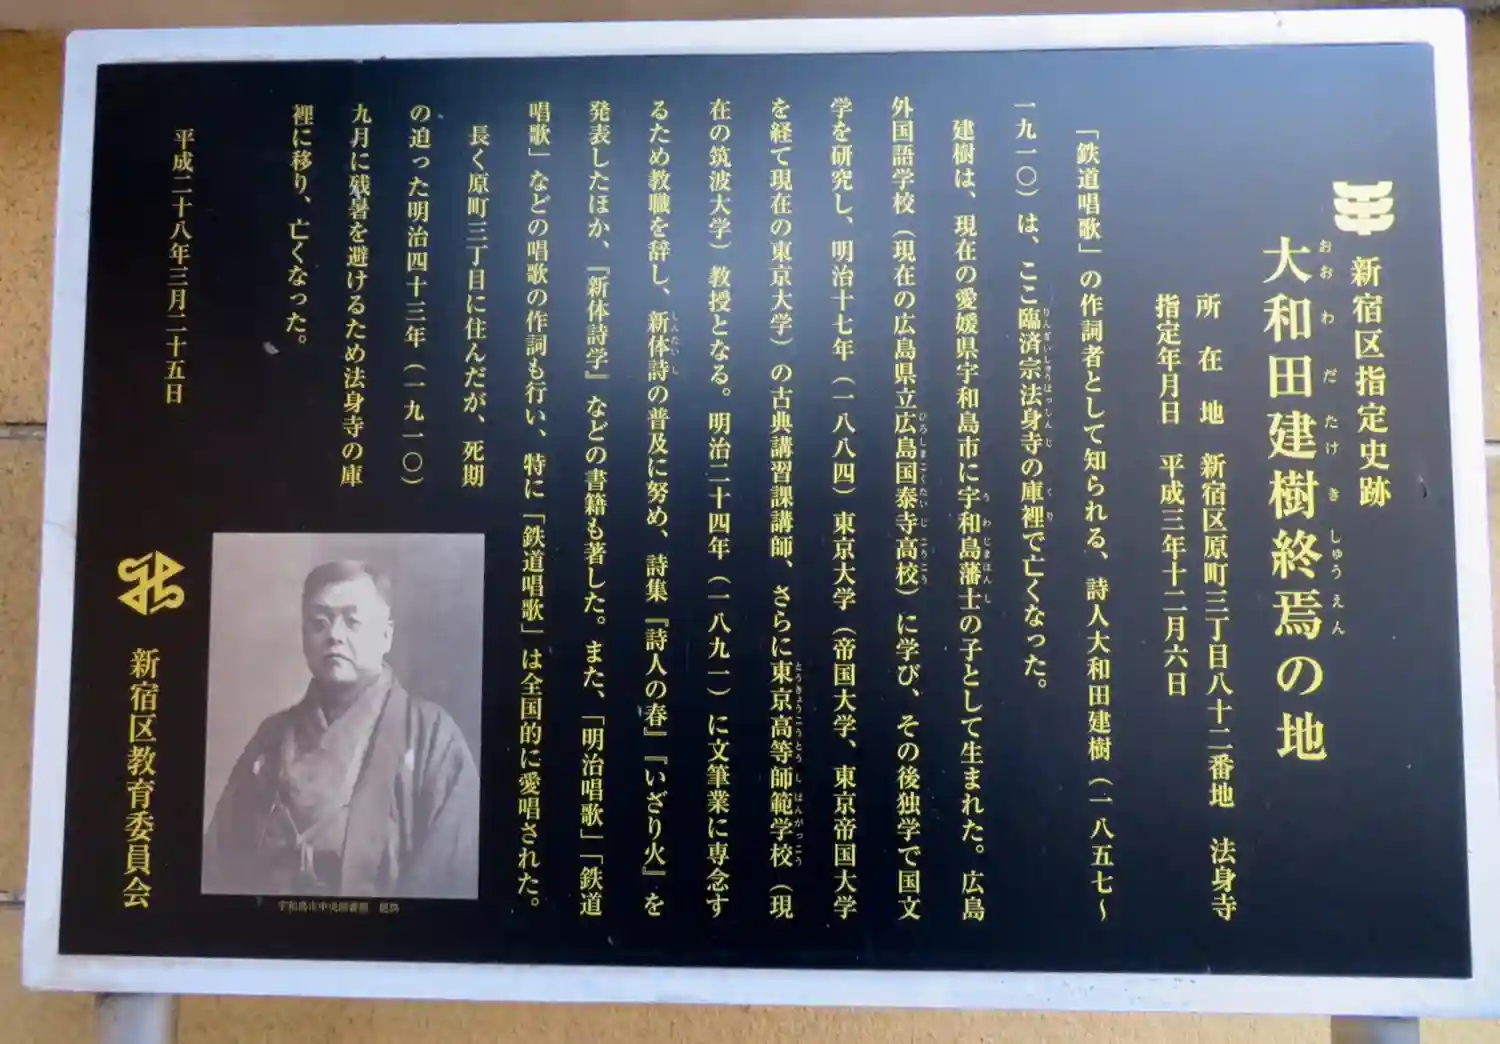 新宿区指定史跡
おおわだたけきしゅうえん
大和田建樹終焉の地
所在地　新宿区原町三丁目八十二番地　法身寺
指定年月日　平成三年十二月六日
「鉄道唱歌」の作詞者として知られる、詩人大和田建樹（一八五七～
一九一〇）は、ここ臨済宗法身寺の庫裡で亡くなった。
りんざいしゅうほっしんじ　くり
建樹は、現在の愛媛県宇和島市に宇和島藩士の子として生まれた。広島
うわじまはんし
外国語学校（現在の広島県立広島国泰寺高校）に学び、その後独学で国文
ひろしまこくたいじこうこう
学を研究し、明治十七年（一八八四）東京大学（帝国大学、東京帝国大学
を経て現在の東京大学）の古典講習課講師、さらに東京高等師範学校（現
とうきょうこうとうしはんがっこう
在の筑波大学）教授となる。明治二十四年（一八九一）に文筆業に専念す
るため教職を辞し、新体詩の普及に努め、詩集『詩人の春』『いざり火』を
しんたいし
発表したほか、『新体詩学』などの書籍も著した。また、「明治唱歌」「鉄道
唱歌」などの唱歌の作詞も行い、特に「鉄道唱歌」は全国的に愛唱された。
長く原町三丁目に住んだが、死期
の迫った明治四十三年（一九一〇）
九月に残暑を避けるため法身寺の庫
裡に移り、亡くなった。
平成二十八年三月二十五日
新宿区教育委員会
宇和島市中央図書館　提供